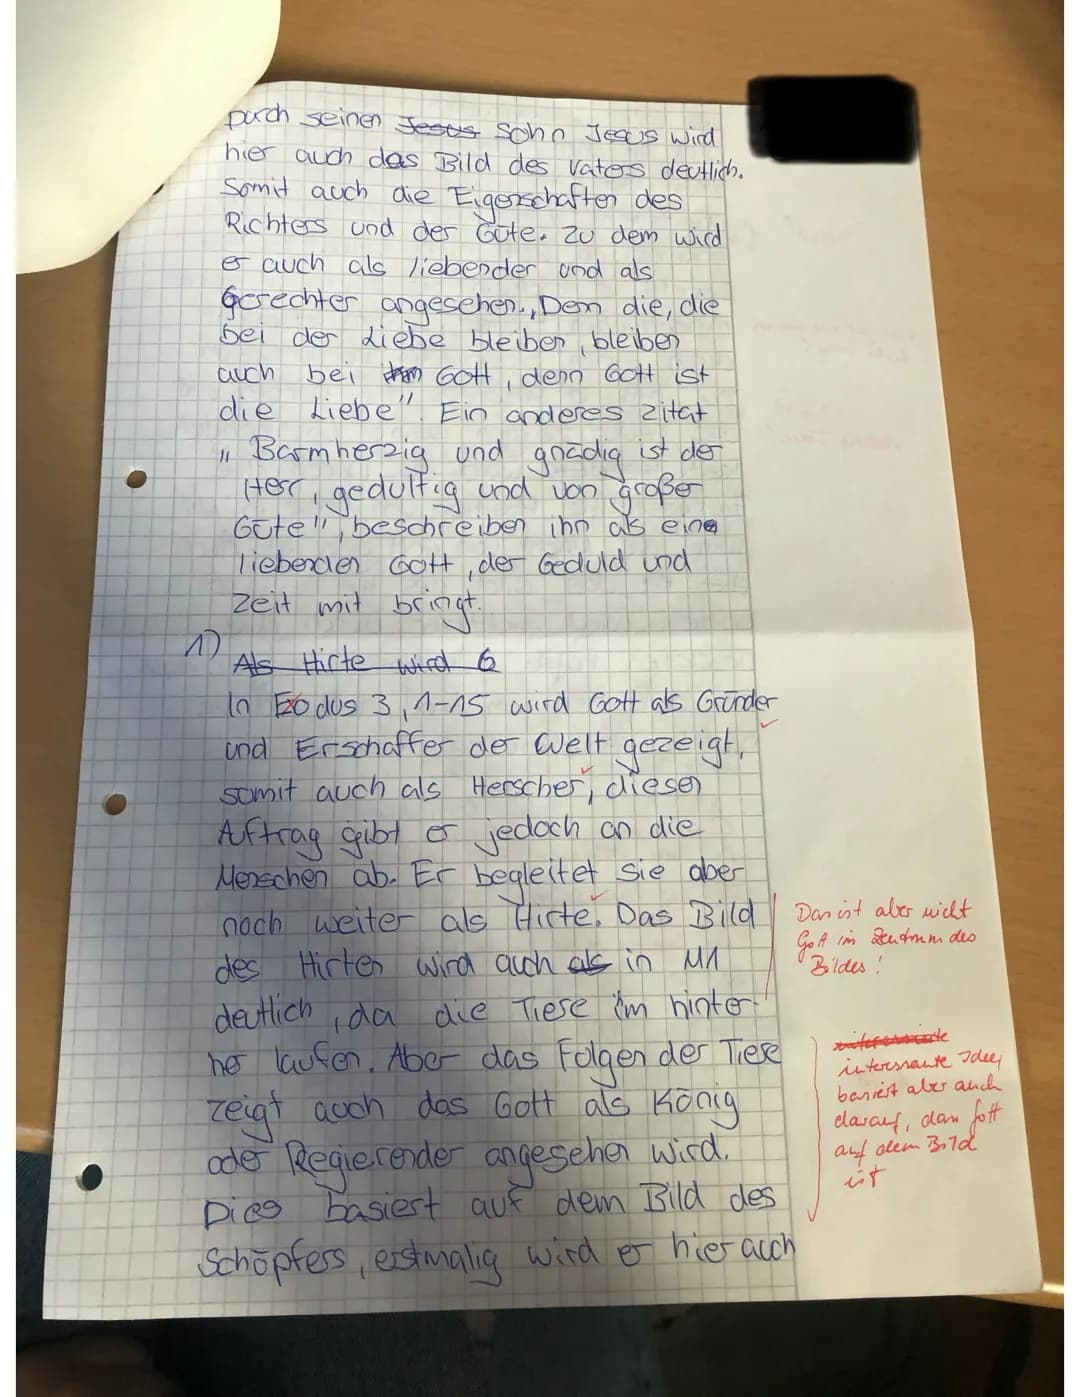 Durch seinen Jesus Sohn Jesus wird
hier auch das Bild des Vaters deutlich.
Somit auch die Eigenschaften des
Richters und der Güte. Zu dem wird
er auch als liebender und als
Gerechter angesehen. „Denn die, die
bei der Liebe bleiben, bleiben
auch bei ihm Gott, denn Gott ist
die Liebe". Ein anderes Zitat
„Barmherzig und gnädig ist der
Herr, gedultig und von großer
Güte", beschreiben ihn als eine
liebenden Gott, der Geduld und
Zeit mit bringt.
1)
Als Hirte wird G
In Exodus 3,1-15 wird Gott als Gründer
und Erschaffer der Welt gezeigt,
somit auch als Herscher, diesen
Auftrag gibt er jedoch an die
Menschen ab. Er begleitet sie aber
noch weiter als Hirte. Das Bild
des Hirten wird auch als in M1
deutlich, da die Tiere im hinter-
her laufen. Aber das Folgen der Tiere
zeigt auch das Gott als König
oder Regierender angesehen wird.
Dies basiert auf dem Bild des
Schöpfers, erstmalig wird er hier auch
Das ist aber nicht
Gott im Zentrum des
Bildes!
interessante Idee,
basiert aber auch
darauf, dass Gott
auf dem Bild
ist